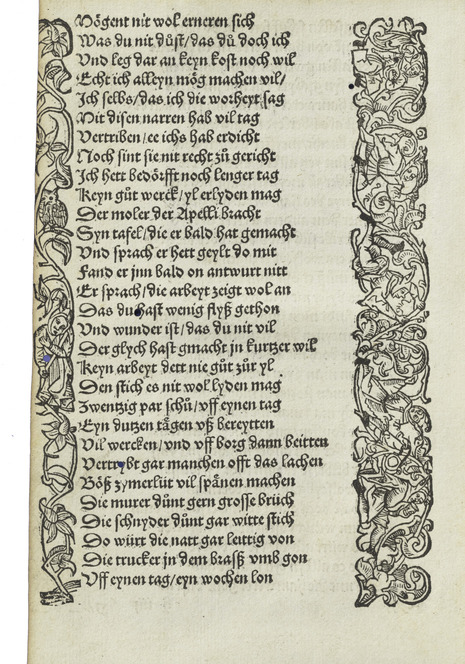 Mögent nit wol erneren sich
Was du nit důst/das dů doch ich
Vnd leg dar an keyn kost noch wil
Echt ich alleyn mög machen vil/
Ich selbs/das ich die worheyt sag
Mit disen narren hab vil tag
Vertriben/ee ichs hab erdicht
Noch sint sie nit recht zů gericht
Ich hett bedörfft noch lenger tag
Keyn gůt werck/yl erlyden mag
Der moler der Apelli bracht
Syn tafel/die er bald hat gemacht
Vnd sprach er hett geylt do mit
Fand er jnn bald on antwurt nitt
Er sprach/die arbeyt zeigt wol an
Das du hast wenig flyß gethon
Vnd wunder ist/das du nit vil
Der glych hast gmacht jn kurtzer wil
Keyn arbeyt dett nie gůt zůr yl
Den stich es nit wol lyden mag
Zwentzig par schů/vff eynen tag
Eyn dutzen tägen vß bereytten
Vil wercken/vnd vff borg dann beitten
Vertribt gar manchen offt das lachen
Bőß zymerlüt vil spånen machen
Die murer dünt gern grosse brüch
Die schnyder dünt gar witte stich
Do würt die natt gar lettig von
Die trucker jn dem braß vmb gon
Vff eynen tag/eyn wochen lon